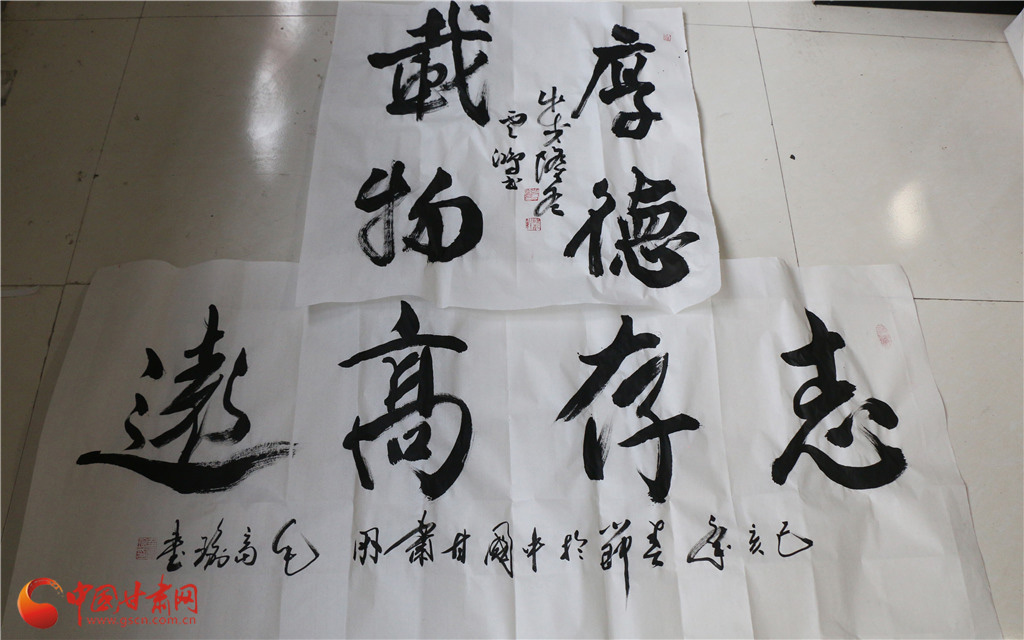 厚德
載物
雲鴻书
志存高遠
己亥年春節於中國甘肅网
高瑜書
中国甘肃网
www.gscn.com.cn